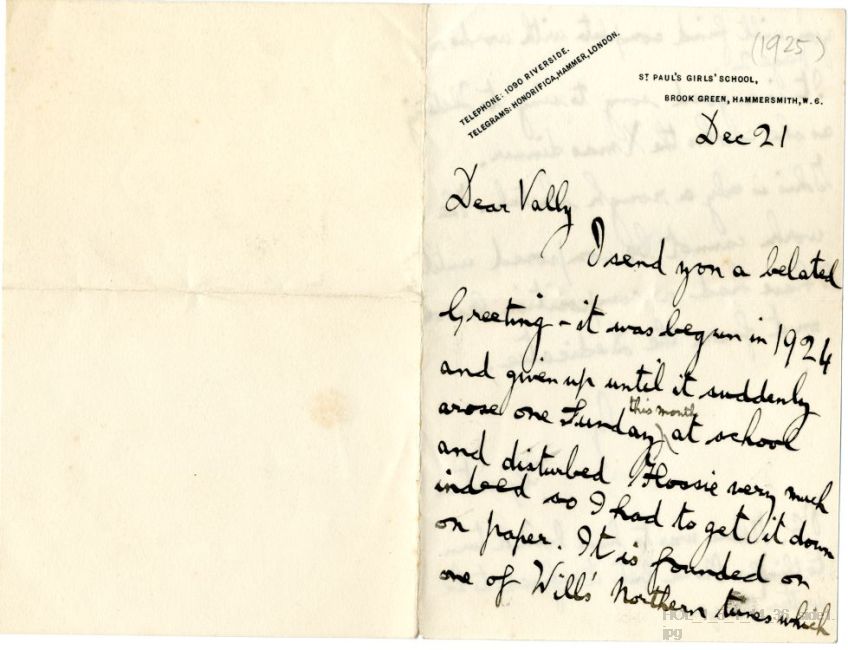 (1925)
TELEPHONE: 1090 RIVERSIDE.
TELEGRAMS: HONORIFICA, HAMMER, LONDON.
ST PAUL'S GIRLS' SCHOOL,
BROOK GREEN, HAMMERSMITH, W. 6.
Dec 21
Dear Vally
I send you a belated
Greeting - it was begun in 1924
and given up until it suddenly
this month
arose one Sunday at school
and disturbed Floosie very much
indeed so I had to get it down
on paper. It is founded on
one of Will's Northern tunes which
jpg